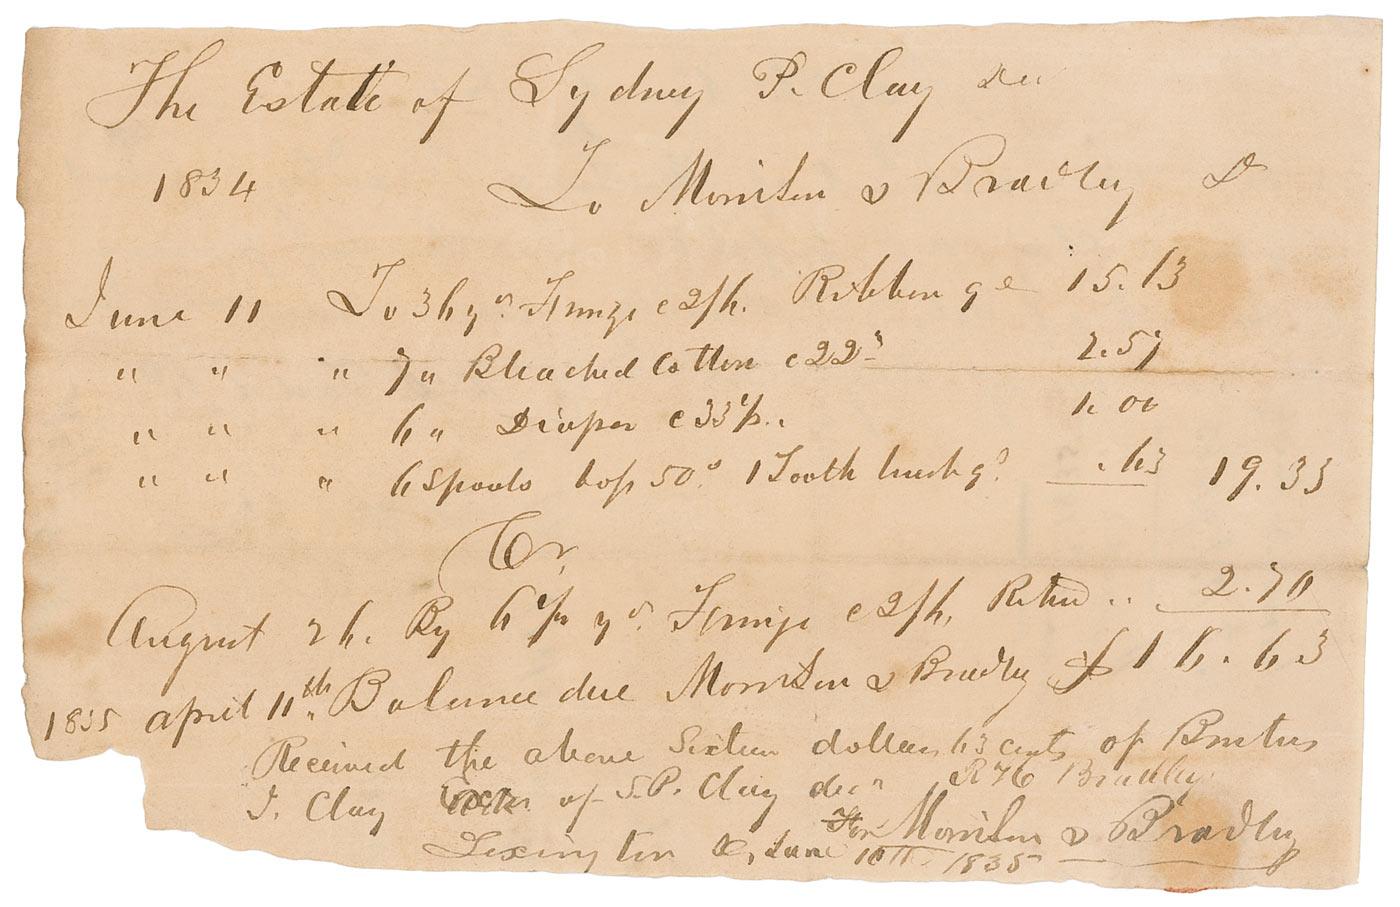 The Estate of Sydney P. Clay Dec
1834 To Morrison & Bradley Dr
June 11 To 36 yds Fringe c 2/6. Ribbon 9c 15.13
" " " 7 " Bleached Cotton c 22s 2.57
" " " 6 " Diaper c 33 1.00
" " " 6 Spools 50c 1 Tooth brush .63 19.33
Cr
August 26. By 6 yds Fringe c 2/6. Retd .. 2.70
1835 april 11th Balance due Morrison & Bradley $ 16.63
Received the above Sixteen dollars 63 cents of Brutus
J. Clay Exctr. of S. P. Clay decd R H Bradley
For Morrison & Bradley
Lexington June 10th 1835